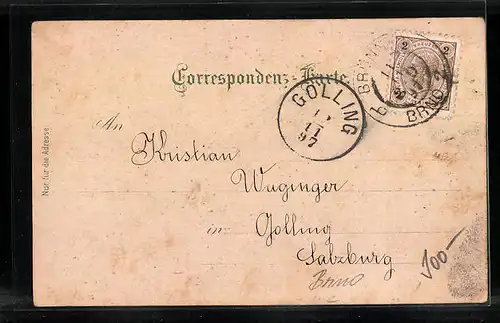 Correspondenz-Karte
2
BRÜNN
BRNO 2
GOLLING
11
97
An
Nur für die Adresse
Kristian
Wuginger
in Golling
Salzburg
Brno
100-